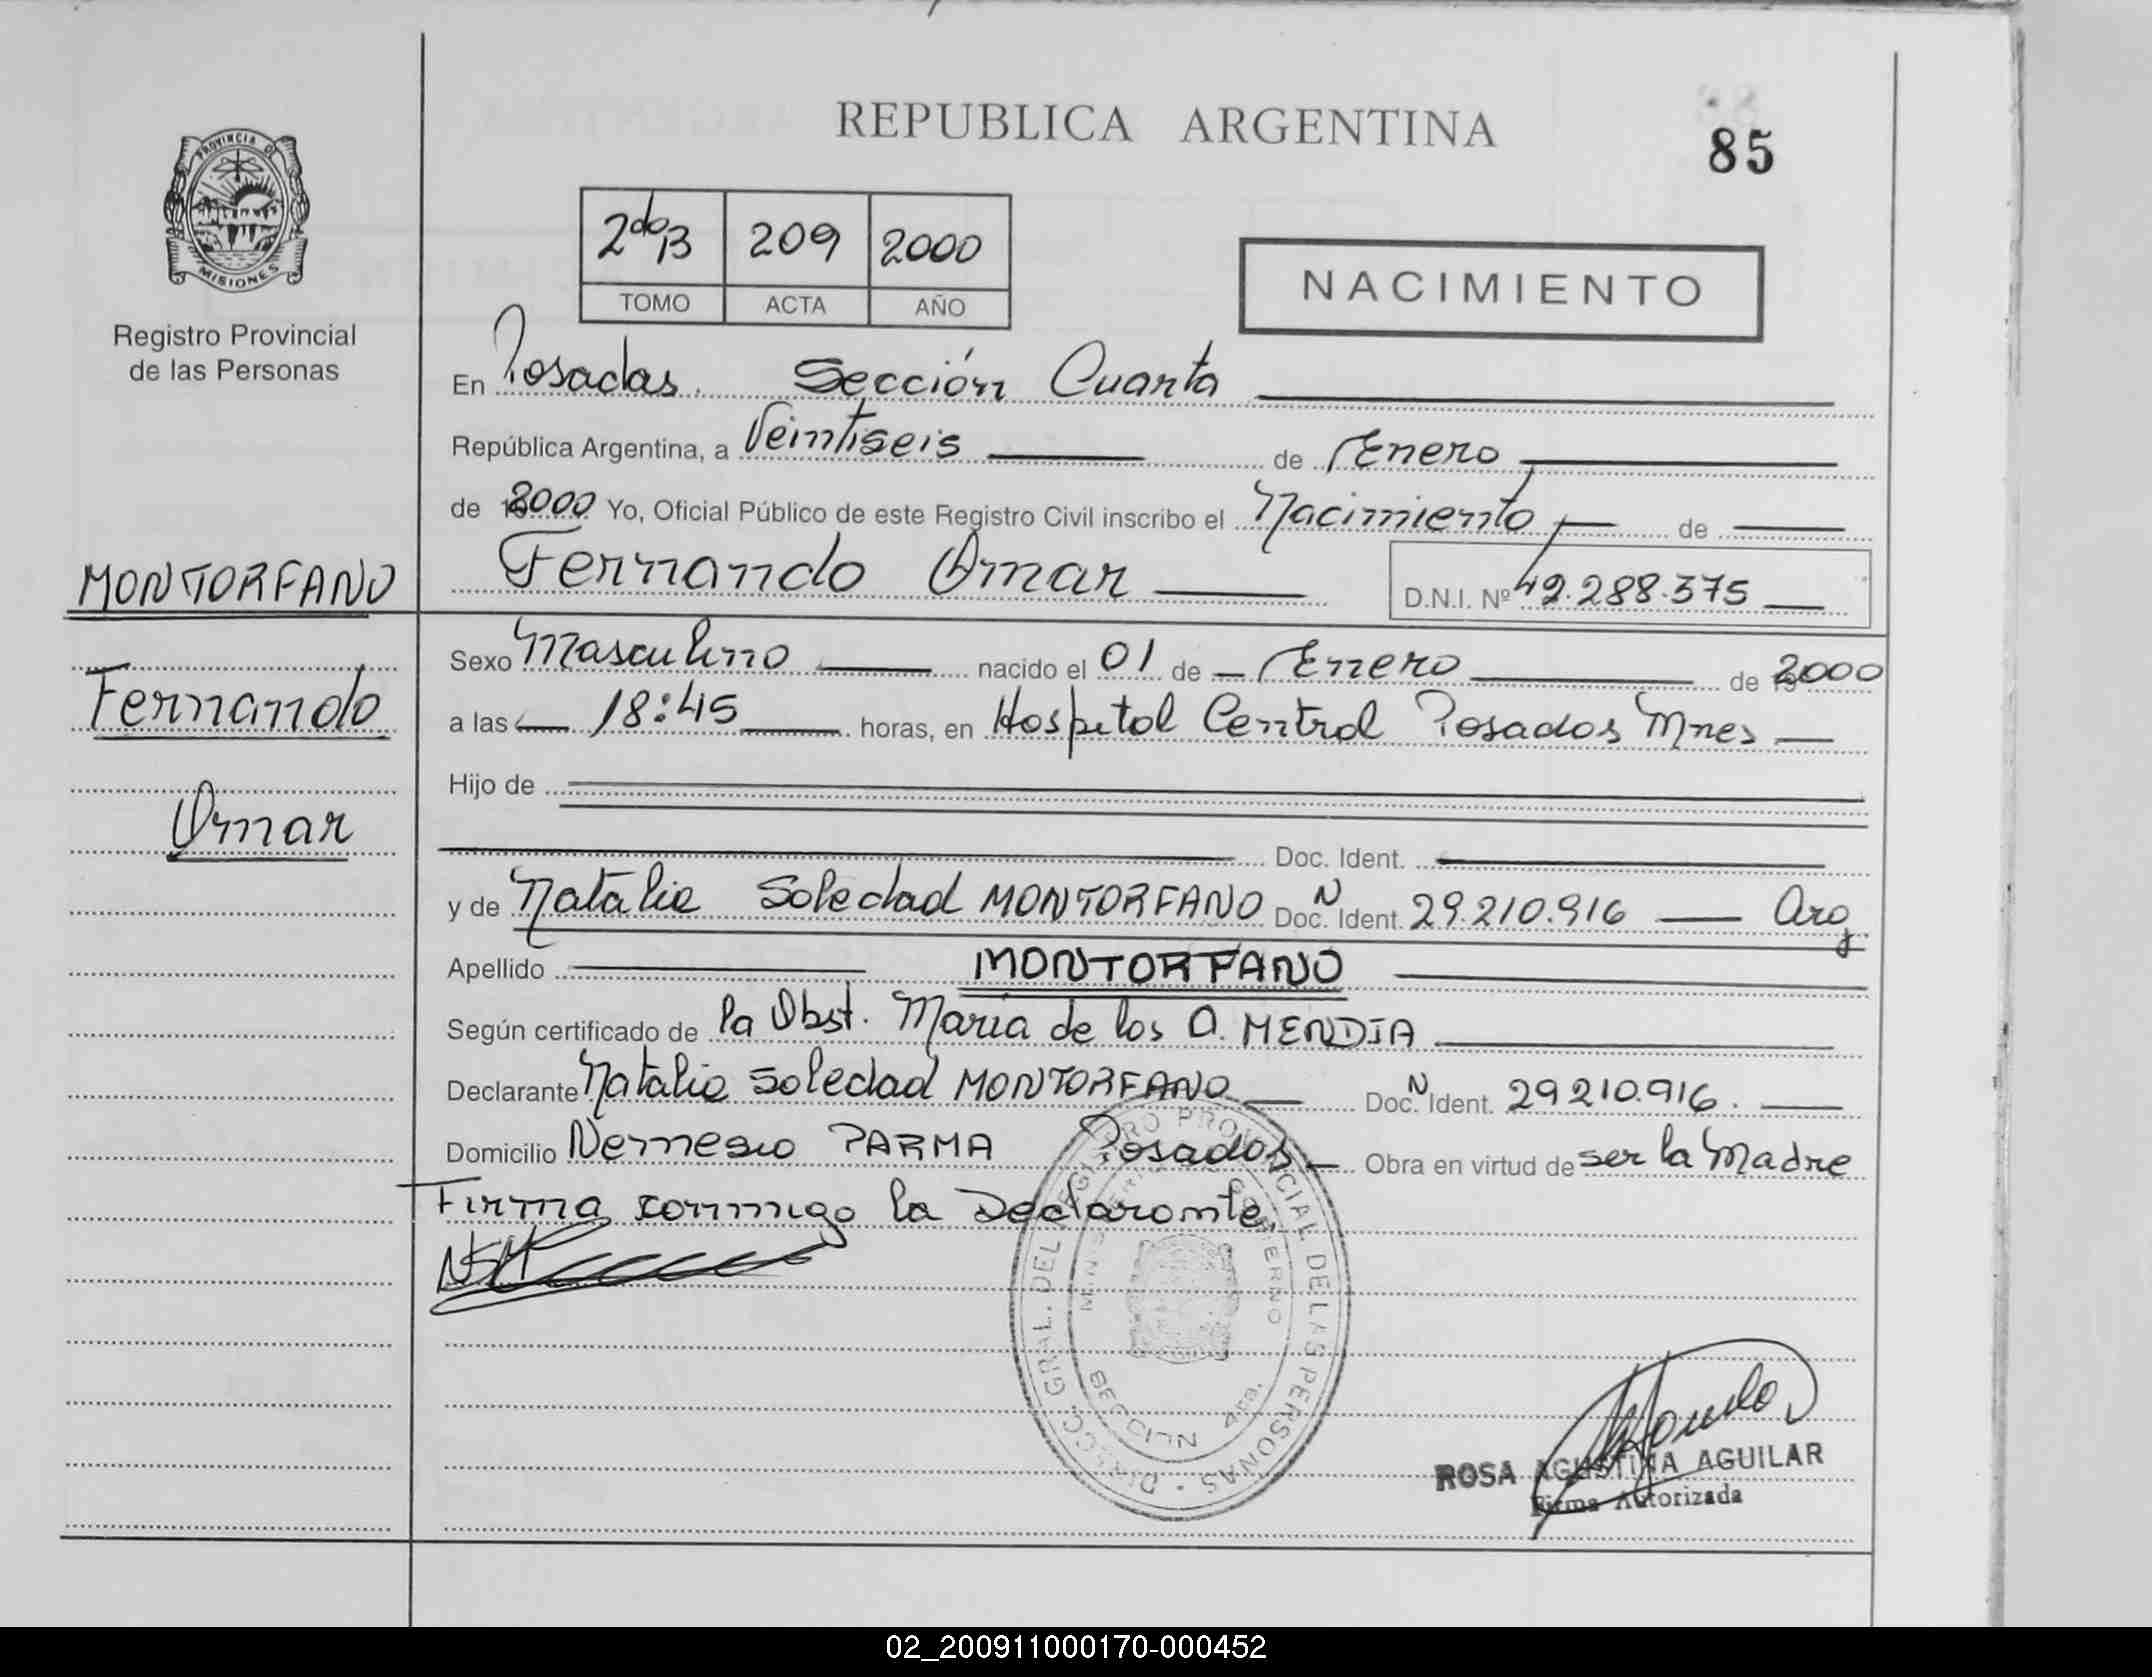 REPUBLICA ARGENTINA
85
PROVINCIA DE
MISIONES
Registro Provincial
de las Personas
2do B 209 2000
TOMO ACTA AÑO
NACIMIENTO
En Posadas. Sección Cuarta
República Argentina, a Veintiseis de Enero
de 2000 Yo, Oficial Público de este Registro Civil inscribo el Nacimiento de
Fernando Omar
D.N.I. Nº 42.288.375
MONTORFANO
Fernando
Omar
Sexo Masculino nacido el 01 de Enero de 2000
a las 18:45 horas, en Hospital Central Posadas Mnes
Hijo de
Doc. Ident.
y de Natalia Soledad MONTORFANO Doc. N Ident. 29.210.916 Arg
Apellido MONTORFANO
Según certificado de la Obst. Maria de los A. MENDIA
Declarante Natalia Soledad MONTORFANO Doc. N Ident. 29210.916.
Domicilio Nemesio PARMA Posadas Obra en virtud de ser la Madre
Firma conmigo la Declarante
DIRECC. GRAL. DEL REGISTRO PROVINCIAL DE LAS PERSONAS
MINISTERIO GOBIERNO
ROSA AGUSTINA AGUILAR
Firma Autorizada
02_200911000170-000452